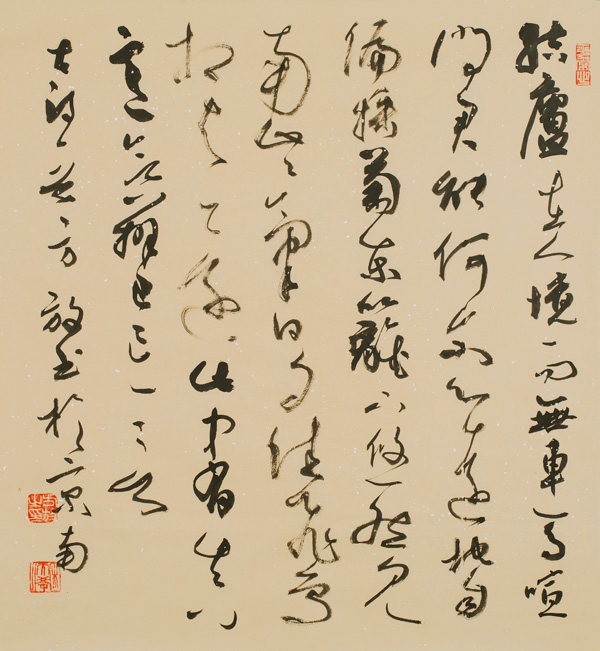 結廬在人境而無車馬喧
問君能何爾心遠地自
偏採菊東籬下悠然見
南山山氣日夕佳飛鳥
相與還此中有真
意欲辨已忘言
古詩一首方放書於京南